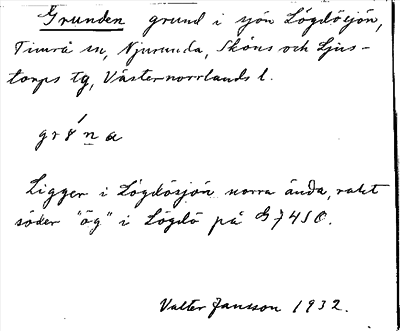 Grunden grund i sjön Lögdösjön,
Timrå sn, Njurunda, Sköns och Ljus-
torps tg, Västernorrlands l.
Ligger i Lögdösjön norra ända, rakt
söder "ög" i Lögdö på
Valter Jansson 1932.